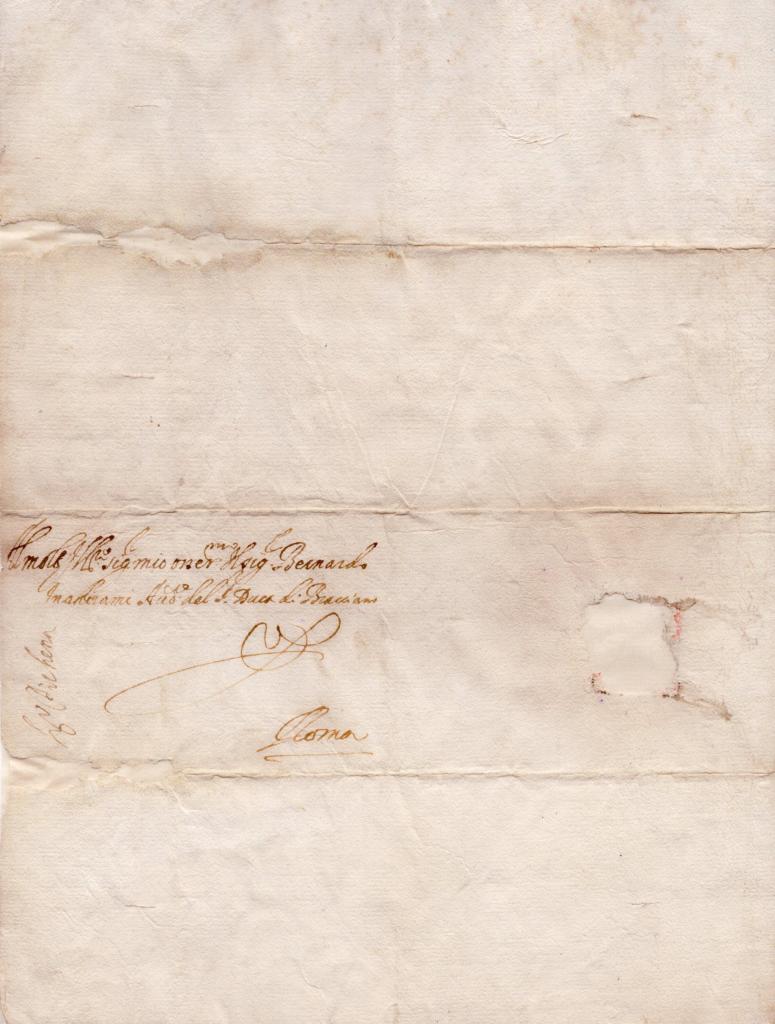 Al molto Ill.re sig.r mio oss.mo Il sig.r Bernardo
Inghirami Aud.re del S. Duca di Bracciano
Roma